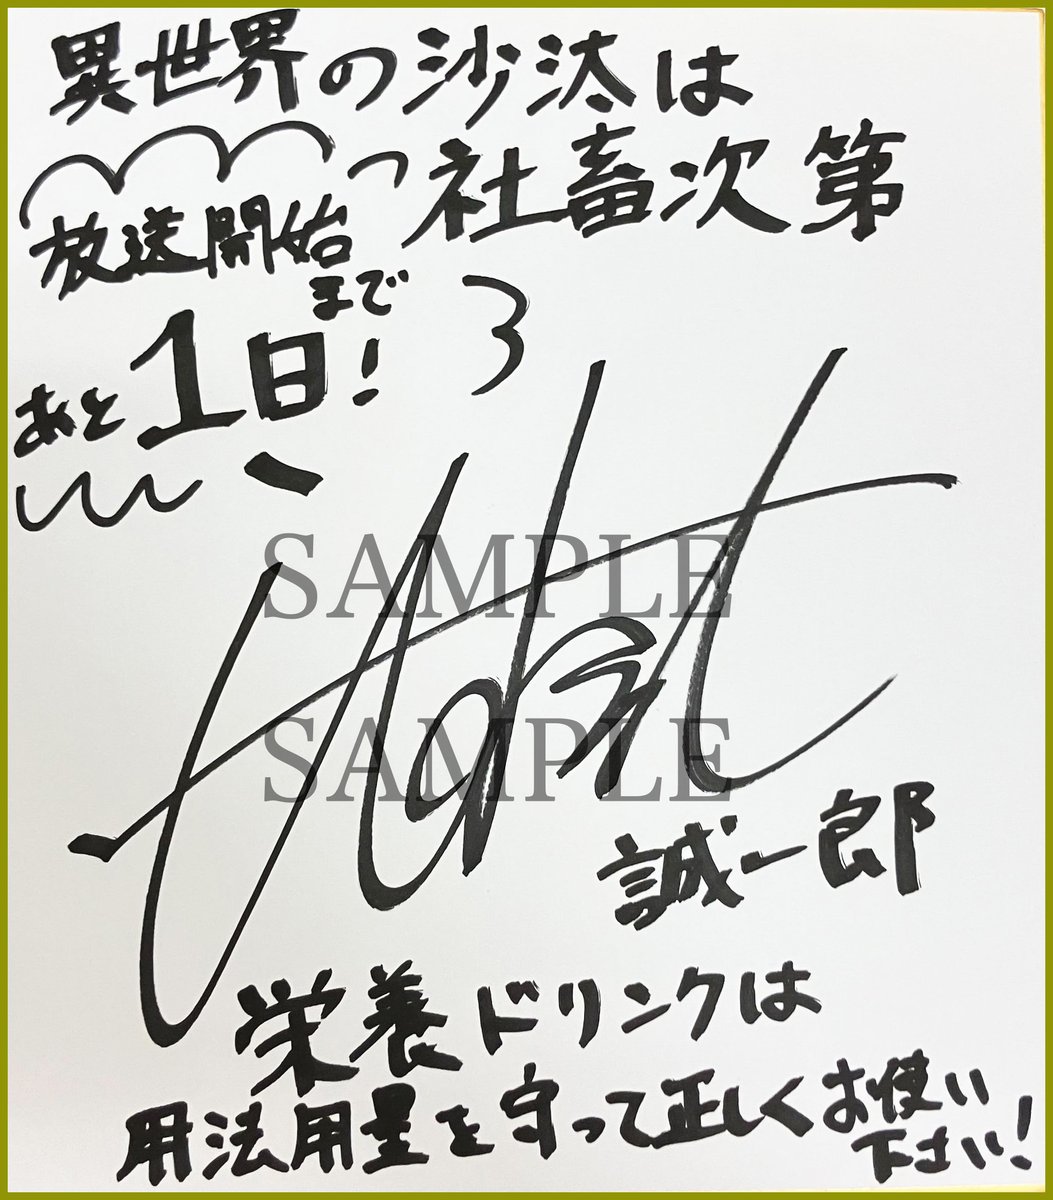 異世界の沙汰は
社畜次第
放送開始
まで
あと1日!
SAMPLE
SAMPLE
誠一郎
栄養ドリンクは
用法用量を守って正しくお使い
下さい!